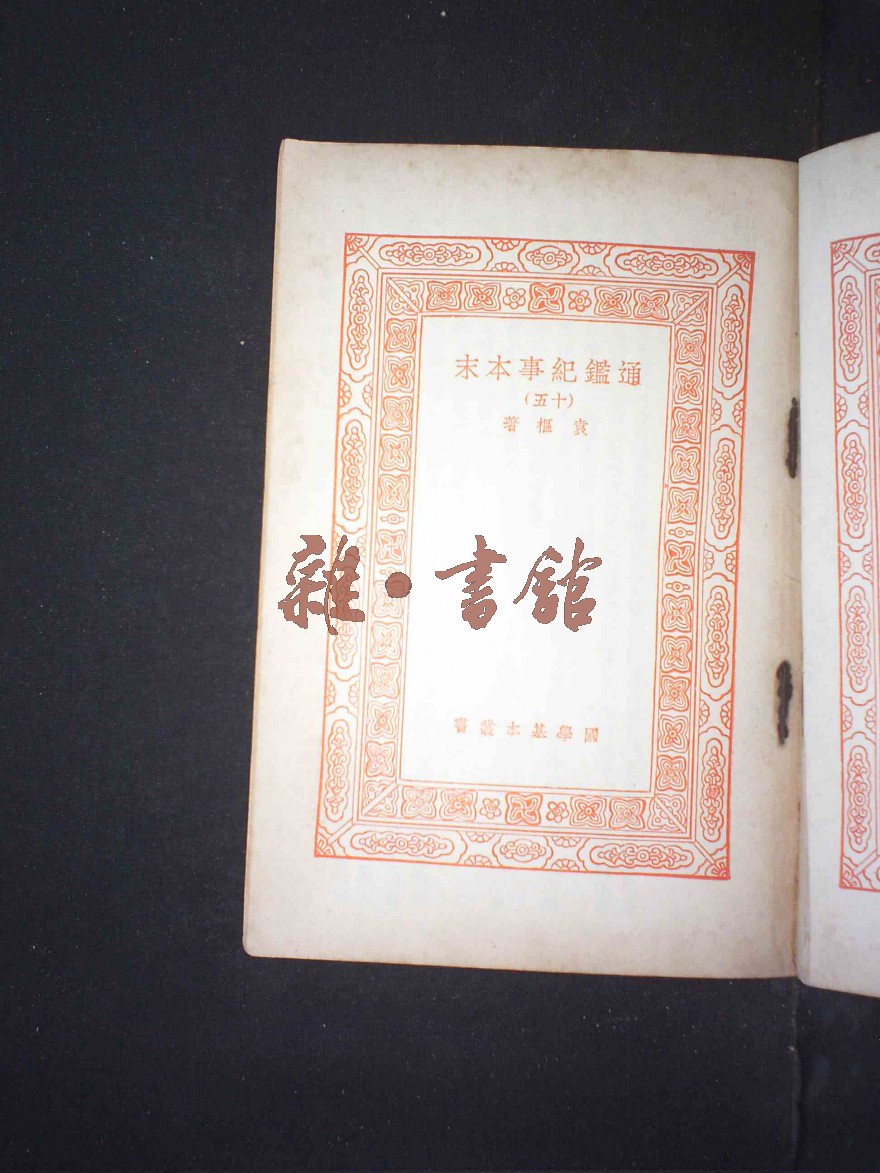 通鑑紀事本末
(十五)
袁樞著
雜·書館
國學基本叢書